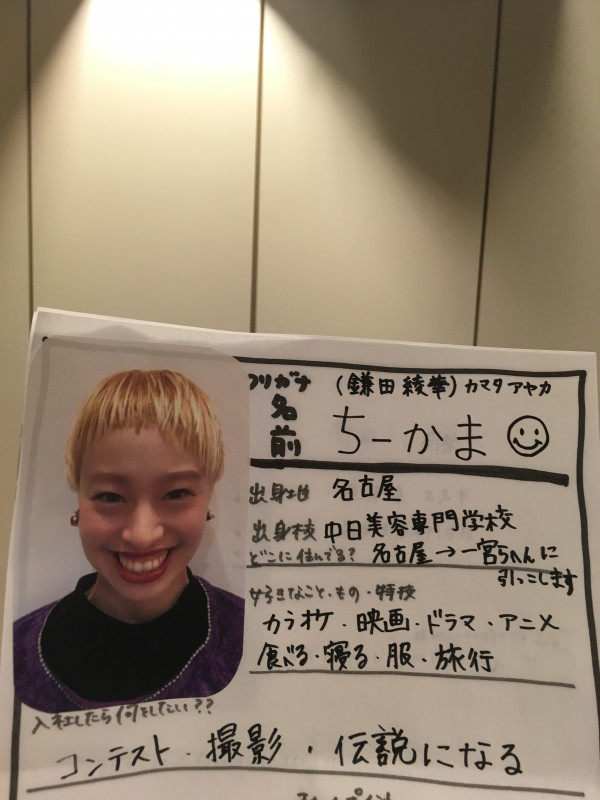 フリガナ (鎌田 綾華) カマタ アヤカ
名前 ちーかま
出身地 名古屋
出身校 中日美容専門学校
どこに住んでる? 名古屋→一宮らへんに
引っこします
好きなこと・もの・特技
カラオケ・映画・ドラマ・アニメ
食べる・寝る・服・旅行
入社したら何をしたい??
コンテスト・撮影・伝説になる